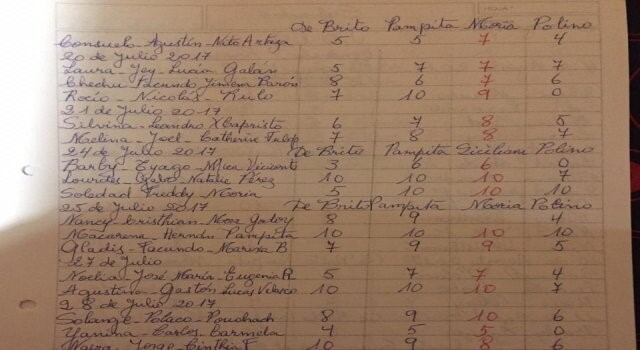 De Brito Pampita Moria Polino
Consuelo - Agustín - Nito Artaza 5 5 7 4
20 de Julio 2017
Laura - Jey - Lucía Galán 5 7 7 7
Chechu Facundo Jimena Barón 8 6 7 6
Rocío - Nicolás - Rulo 7 10 9 0
21 de Julio 2017
Silvina - Leandro 6 7 8 5
Melina - Joel - Catherine Fulop 7 8 8 7
24 de Julio 2017 De Brito Pampita Siciliani Polino
Barby - Tyago - Mica Viciconte 3 6 6 0
Lourdes Natalie Pérez 10 10 10 7
Soledad Freddy Moria 5 10 10 10
25 de Julio 2017 De Brito Pampita Moria Polino
Nancy - Cristhian - Godoy 8 9 4
Macarena Hernán Pampita 10 10 10 10
Gladis - Facundo - Marixa B 7 9 9 5
27 de Julio
Noelia José María - Eugenia R 5 7 7 4
Agustina - Gastón Lucas Velasco 10 10 10 7
28 de Julio 2017
Solange - Polaco - 8 9 10 6
Yanina - Carlos - Carmela 4 5 5 0
Jorge - Cinthia F 10 9 8 6